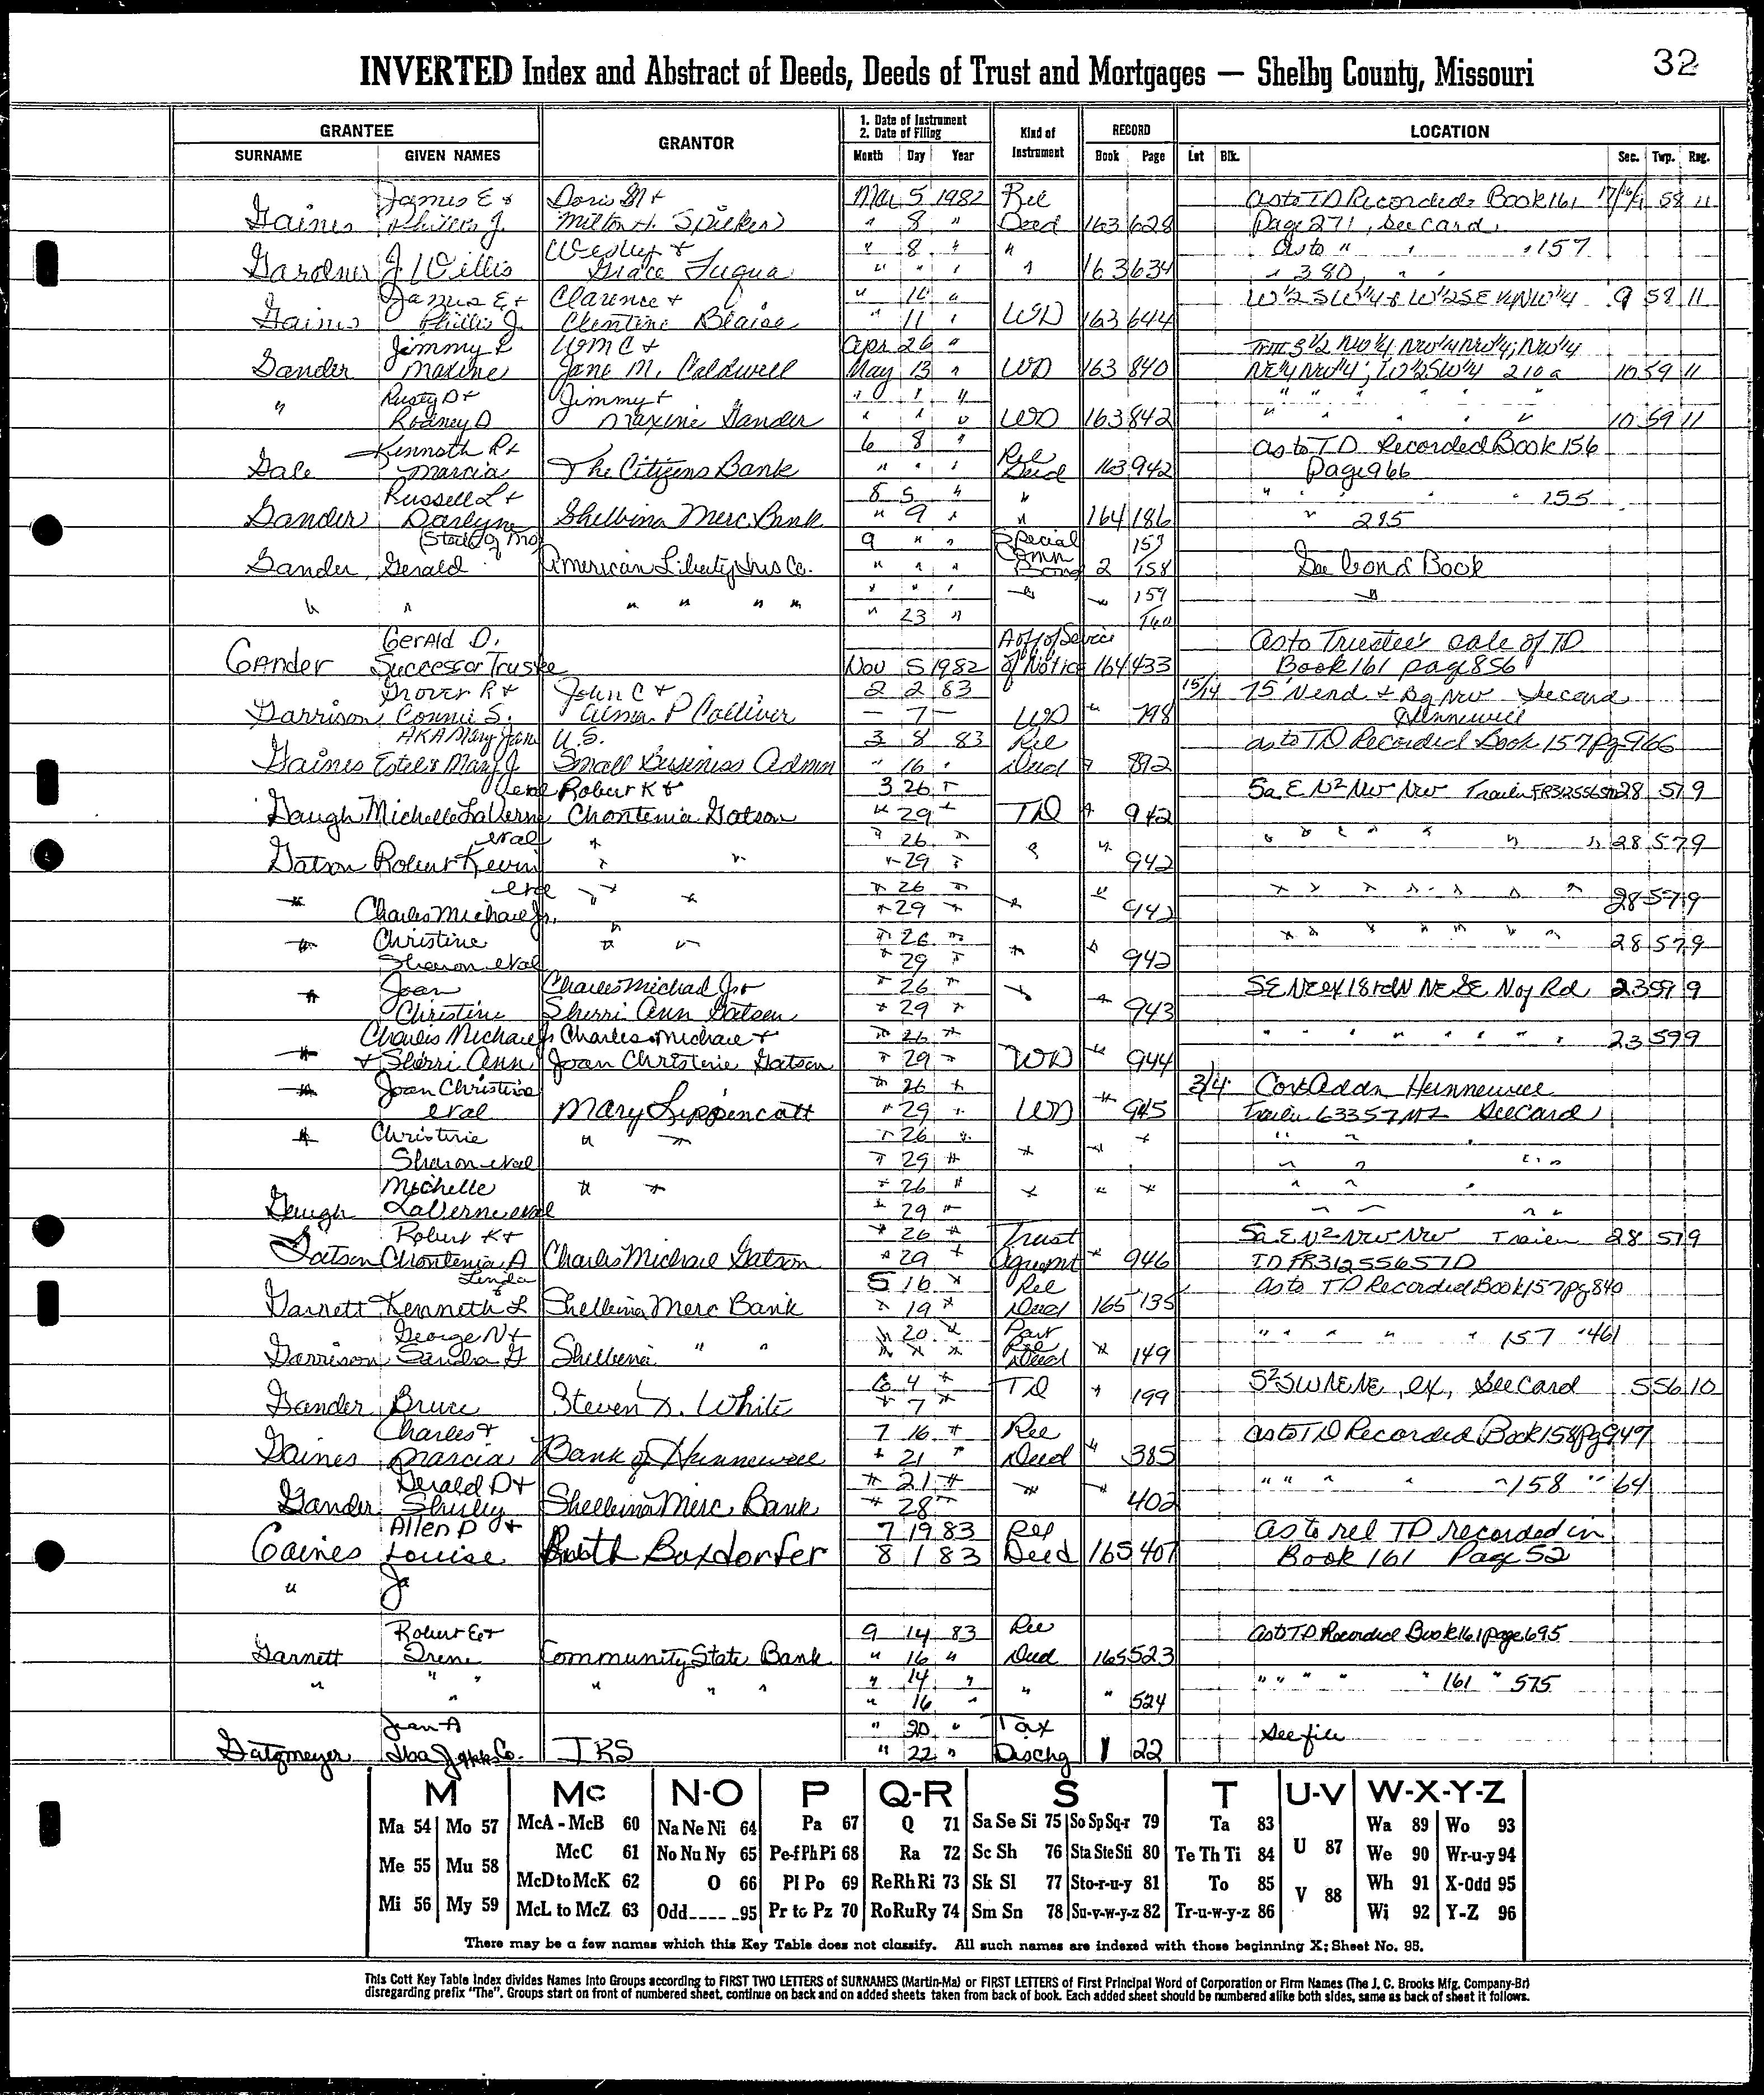 32
INVERTED Index and Abstract of Deeds, Deeds of Trust and Mortgages — Shelby County, Missouri
GRANTEE GRANTOR 1. Date of Instrument 2. Date of Filing Kind of Instrument RECORD LOCATION
SURNAME GIVEN NAMES Month Day Year Book Page Lot Blk. Sec. Twp. Rng.
James E & Doris M & Mar 5 1982 Rel as to TD Recorded Book 161 58 11
Gaines Phillis J. Milton H. Spicker " 8 " Deed 163 628 Page 271, see card
Wesley & " 8 " " as to " " " 157
Gardner J Willis Grace Fuqua " " " " 163 634 " 380 " "
James E & Clarence & " 10 " W 1/2 SW 1/4 & W 1/2 SE 1/4 NW 1/4 9 58 11
Gaines Phillis J. Clentine Blaise " 11 " WD 163 644
Jimmy & Wm C & Apr 26 " S 1/2 NW 1/4 NW 1/4 NW 1/4; NW 1/4
Gander Maxine Jane M. Caldwell May 13 " WD 163 840 NE 1/4 NW 1/4; W 1/2 SW 1/4 210 a 10 59 11
Rusty D & Jimmy & " " "
" Rodney D Maxine Gander " " " WD 163 842 " " " " " 10 59 11
Kenneth R & 6 8 " as to TD Recorded Book 156
Gale Marcia The Citizens Bank " " " Rel Deed 163 942 Page 966
Russell L & 8 5 " " " " " " 155
Gander Darlyne Shelbina Merc Bank " 9 " " 164 186 " 295
(State of Mo) 9 " " Special 157
Gander, Gerald American Liberty Ins Co. " " " Bond 2 158 See bond Book
" " " " " " " " " " 159 "
" 23 " 160
Gerald D. Aff of Service as to Trustee's sale of TD
Gander Successor Trustee Nov 5 1982 of Notice 164 433 Book 161 page 856
Grover R & John C & 2 2 83 15/14 75' N end & Bg NW Second
Garrison Connie S. Alma P Colliver — 7 — WD " 798 Hunnewell
AKA Mary Jane U.S. 3 8 83 Rel as to TD Recorded Book 157 Pg 966
Gaines Estel & Mary J Small Business Admn " 16 " Deed " 892
etal Robert K & 3 26 " 5a E N2 NW NW Trailer 28 57 9
Gaugh Michelle LaVerne Chontenia Gatson " 29 " TD " 942
etal " " 26 " " " " " " " " 28 57 9
Gatson Robert Kevin " " " 29 " " " 942
etal " " " 26 " " " " " " " "
" Charles Michael Jr. " 29 " " " 942 28 57 9
" Christine " " " 26 " " " " " " " " 28 57 9
Sharon etal " 29 " " " 942
" Joan Charles Michael Jr & " 26 " " SE NE ex 18 rd N NE SE N of Rd 23 59 9
Christine Sherri Ann Gatson " 29 " " 943
Charles Michael Jr Charles Michael & " 26 " " " " " " " " 23 59 9
" & Sherri Ann Joan Christine Gatson " 29 " WD " 944
" Joan Christine " 26 " 3/4 Addn Hunnewell
etal Mary Lippencott " 29 " WD " 945 Trailer See Card
" Christine " " " 26 " " " " " "
Sharon etal " 29 " " " "
Michelle " " " 26 " " " " " " "
Gaugh LaVerne etal " 29 " " "
Robert K & " 26 " Trust 5a E N2 NW NW Trailer 28 57 9
Gatson Chontenia A Charles Michael Gatson " 29 " Agremnt " 946 TD FR31255657D
Linda & 5 16 " Rel as to TD Recorded Book 157 pg 840
Garnett Kenneth L Shelbina Merc Bank " 19 " Deed 165 135
George N & " 20 " Part " " " " " 157 " 461
Garrison Sandra G Shelbina " " " " " Rel Deed " 149
6 4 " TD S2 SW NE NE, ex, See Card 5 56 10
Gander Bruce Steven D. White " 7 " " 199
Charles & 7 16 " Rel as to TD Recorded Book 158 Pg 949
Gaines Marcia Bank of Hunnewell " 21 " Deed " 385
Gerald D & " 21 " " " " " " 158 " 64
Gander Shirley Shelbina Merc Bank " 28 " " " 402
Allen D & 7 19 83 Rel as to rel TD recorded in
Gaines Louise Ruth Boxdorfer 8 1 83 Deed 165 407 Book 161 Page 52
" Ja
Robert E & 9 14 83 Rel as to TD Recorded Book 161 page 695
Garnett Irene Community State Bank " 16 " Deed 165 523
" " " " " " " 14 " " " " " " 161 " 575
" " 16 " " " 524
Jean A " 20 " Tax See file
Gatzmeyer IRS " 22 " Dischg 1 22
M Mc N-O P Q-R S T U-V W-X-Y-Z
Ma 54 Mo 57 McA - McB 60 Na Ne Ni 64 Pa 67 Q 71 Sa Se Si 75 So Sp Sq-r 79 Ta 83 U 87 Wa 89 Wo 93
Me 55 Mu 58 McC 61 No Nu Ny 65 Pe-f Ph Pi 68 Ra 72 Sc Sh 76 Sta Ste Sti 80 Te Th Ti 84 V 88 We 90 Wr-u-y 94
McD to McK 62 O 66 Pl Po 69 Re Rh Ri 73 Sk Sl 77 Sto-r-u-y 81 To 85 Wh 91 X-Odd 95
Mi 56 My 59 McL to McZ 63 Odd_____95 Pr to Pz 70 Ro Ru Ry 74 Sm Sn 78 Su-v-w-y-z 82 Tr-u-w-y-z 86 Wi 92 Y-Z 96
There may be a few names which this Key Table does not classify. All such names are indexed with those beginning X; Sheet No. 95.
This Cott Key Table Index divides Names into Groups according to FIRST TWO LETTERS of SURNAMES (Martin-Ma) or FIRST LETTERS of First Principal Word of Corporation or Firm Names (The J. C. Brooks Mfg. Company-Br)
disregarding prefix "The". Groups start on front of numbered sheet, continue on back and on added sheets taken from back of book. Each added sheet should be numbered alike both sides, same as back of sheet it follows.